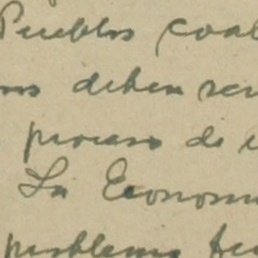 Pueblos coal
mos deben ser
proceso de i
La Economi
problema fu